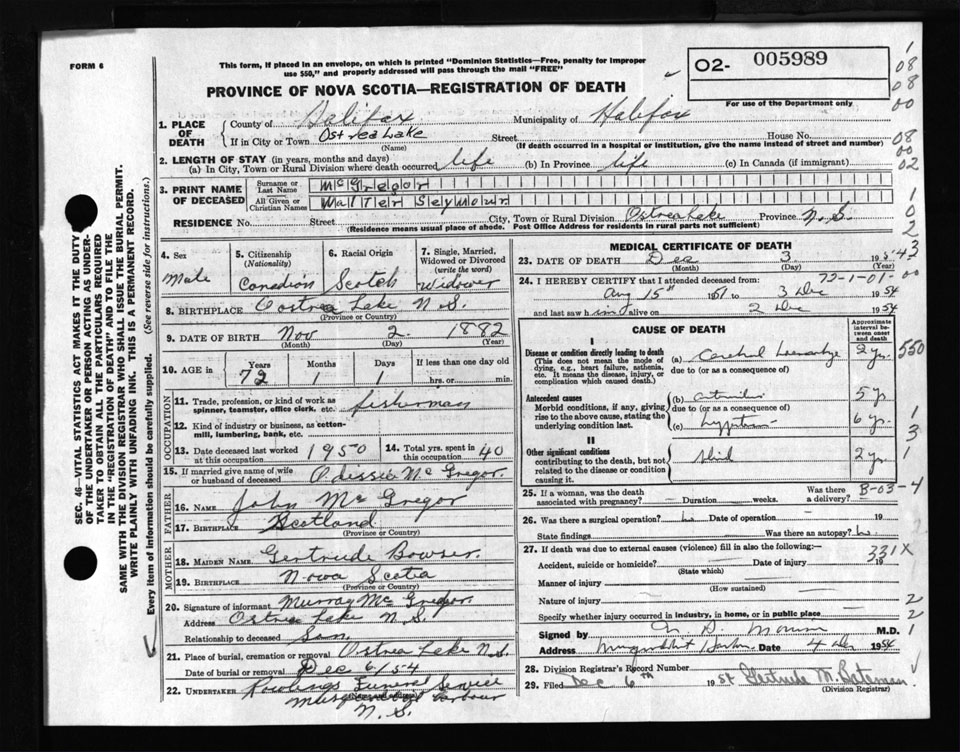 FORM 6
This form, if placed in an envelope, on which is printed "Dominion Statistics—Free, penalty for improper
use $50," and properly addressed will pass through the mail "FREE"
O2- 005989
PROVINCE OF NOVA SCOTIA—REGISTRATION OF DEATH
For use of the Department only
1
08
08
00
1. PLACE OF DEATH
County of Halifax Municipality of Halifax
If in City or Town Ostrea Lake Street House No.
(Name) (If death occurred in a hospital or institution, give the name instead of street and number)
08
00
02
2. LENGTH OF STAY (in years, months and days)
(a) In City, Town or Rural Division where death occurred life (b) In Province life (c) In Canada (if immigrant)
3. PRINT NAME OF DECEASED
Surname or Last Name McGregor
All Given or Christian Names Walter Seymour
1
0
2
RESIDENCE No. Street City, Town or Rural Division Ostrea Lake Province N.S.
(Residence means usual place of abode. Post Office Address for residents in rural parts not sufficient)
4. Sex Male
5. Citizenship (Nationality) Canadian
6. Racial Origin Scotch
7. Single, Married, Widowed or Divorced (write the word) Widower
8. BIRTHPLACE Oostrea Lake N.S.
(Province or Country)
9. DATE OF BIRTH Nov 2 1882
(Month) (Day) (Year)
10. AGE in Years 72 Months 1 Days 1 If less than one day old
hrs. or min.
OCCUPATION
11. Trade, profession, or kind of work as
spinner, teamster, office clerk, etc. fisherman
12. Kind of industry or business, as cotton-
mill, lumbering, bank, etc.
13. Date deceased last worked at this occupation 1950 14. Total yrs. spent in this occupation 40
15. If married give name of wife
or husband of deceased Odessie McGregor
FATHER
16. NAME John McGregor
17. BIRTHPLACE Scotland
(Province or Country)
MOTHER
18. MAIDEN NAME Gertrude Bowser.
19. BIRTHPLACE Nova Scotia
(Province or Country)
20. Signature of informant Murray McGregor
Address Ostrea Lake N.S.
Relationship to deceased Son
21. Place of burial, cremation or removal Ostrea Lake N.S.
Date of burial or removal Dec 6/54
22. UNDERTAKER Rowlings Funeral Service
(Name and address) Musquodoboit Harbour
N.S.
MEDICAL CERTIFICATE OF DEATH
23. DATE OF DEATH Dec 3 195
(Month) (Day) (Year)
24. I HEREBY CERTIFY that I attended deceased from: 72-1-01-00
Aug 15th 1951 to 3 Dec 1954
and last saw him alive on 2 Dec 1954
CAUSE OF DEATH
Approximate interval between onset and death
I
Disease or condition directly leading to death (a) Cerebral 2 yr. 550
(This does not mean the mode of
dying, e.g., heart failure, asthenia,
etc. It means the disease, injury, or
complication which caused death.)
due to (or as a consequence of)
Antecedent causes (b) 5 y
Morbid conditions, if any, giving
rise to the above cause, stating the
underlying condition last.
due to (or as a consequence of)
(c) 6 yr.
1
3
1
II
Other significant conditions
contributing to the death, but not
related to the disease or condition
causing it.
2 yr
25. If a woman, was the death
associated with pregnancy? Duration weeks. Was there a delivery? 8-03-4
26. Was there a surgical operation? no Date of operation 19
State findings Was there an autopsy? no
27. If death was due to external causes (violence) fill in also the following:—
331X
Accident, suicide or homicide? Date of injury 19
(State which)
Manner of injury
(How sustained)
Nature of injury
Specify whether injury occurred in industry, in home, or in public place
2
2
1
Signed by M.D.
Address Date 4 Dec 1954
28. Division Registrar's Record Number
29. Filed Dec 6th 1954 Gertrude M. Bateman
(Division Registrar)
SEC. 46—VITAL STATISTICS ACT MAKES IT THE DUTY
OF THE UNDERTAKER OR PERSON ACTING AS UNDER-
TAKER TO OBTAIN ALL THE PARTICULARS REQUIRED
IN THE "REGISTRATION OF DEATH" AND TO FILE THE
SAME WITH THE DIVISION REGISTRAR WHO SHALL ISSUE THE BURIAL PERMIT.
WRITE PLAINLY WITH UNFADING INK. THIS IS A PERMANENT RECORD.
Every item of information should be carefully supplied. (See reverse side for instructions.)